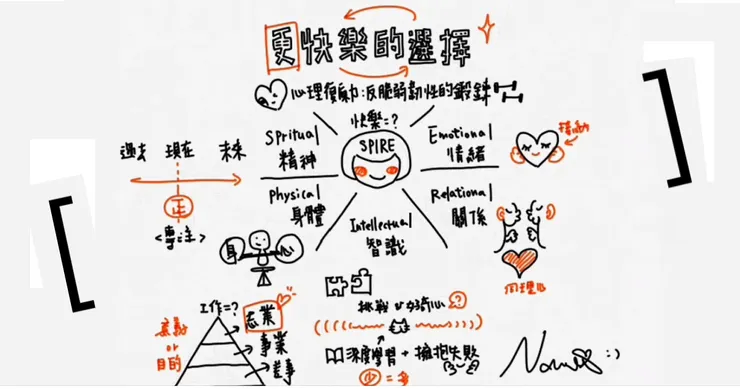 更快樂的選擇
心理復原力:反脆弱韌性的鍛鍊
快樂=?
SPIRE
過去 現在 未來
正
<專注>
Spritual
精神
Emotional
情緒
接納
Physical
身體
Relational
關係
Intellectual
智識
身 心
同理心
工作=?
志業
事業
差事
意義
or
目的
挑戰 好奇心?
深度學習+擁抱失敗
少=多